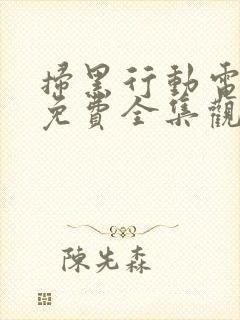 掃黑行動電
免費全集觀
陳先森